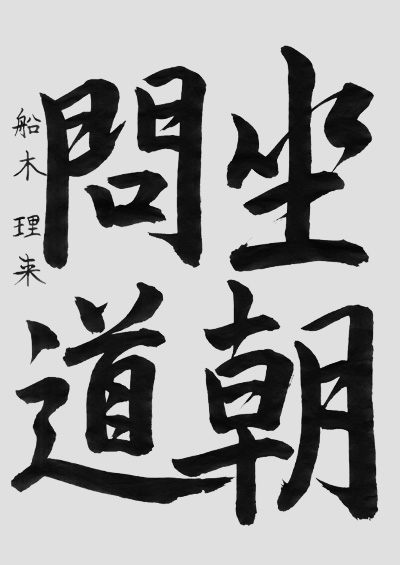 坐朝
問道
船木理来